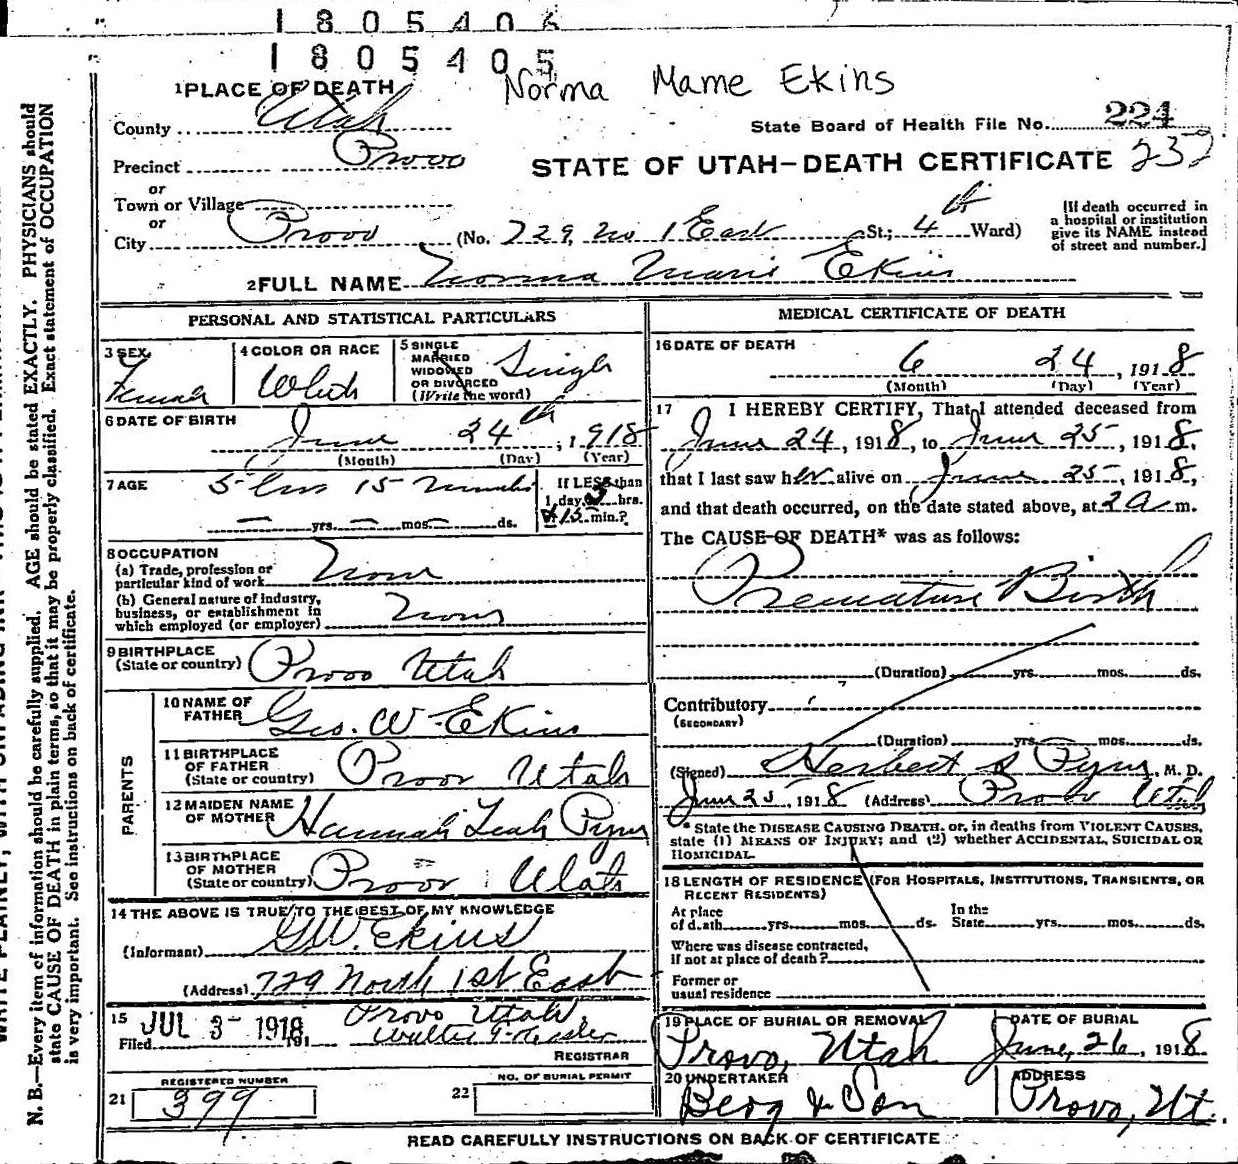 1 8 0 5 4 0 6
1 8 0 5 4 0 5
Norma Mame Ekins
1 PLACE OF DEATH
County Utah
State Board of Health File No. 224
Precinct Provo
STATE OF UTAH—DEATH CERTIFICATE 232
or
Town or Village
or
City Provo (No. 729 No 1 East St.; 4th Ward)
[If death occurred in
a hospital or institution
give its NAME instead
of street and number.]
2 FULL NAME Norma Marie Ekins
PERSONAL AND STATISTICAL PARTICULARS
3 SEX Female
4 COLOR OR RACE White
5 SINGLE
MARRIED
WIDOWED
OR DIVORCED
(Write the word)
Single
6 DATE OF BIRTH
June 24th, 1918
(Month) (Day) (Year)
7 AGE 5 hrs 15 minutes
yrs. mos. ds.
If LESS than
1 day, 5 hrs.
15 min.?
8 OCCUPATION
(a) Trade, profession or
particular kind of work None
(b) General nature of industry,
business, or establishment in
which employed (or employer) None
9 BIRTHPLACE
(State or country) Provo Utah
PARENTS
10 NAME OF
FATHER Geo. W. Ekins
11 BIRTHPLACE
OF FATHER
(State or country) Provo Utah
12 MAIDEN NAME
OF MOTHER Hannah Leah Pyne
13 BIRTHPLACE
OF MOTHER
(State or country) Provo Utah
14 THE ABOVE IS TRUE TO THE BEST OF MY KNOWLEDGE
(Informant) G.W. Ekins
(Address) 729 North 1st East
Provo Utah
15
Filed JUL 3 - 1918, 191 Walter T.
REGISTRAR
REGISTERED NUMBER
21 399
NO. OF BURIAL PERMIT
22
MEDICAL CERTIFICATE OF DEATH
16 DATE OF DEATH
6 24, 1918
(Month) (Day) (Year)
17 I HEREBY CERTIFY, That I attended deceased from
June 24, 1918, to June 25, 1918,
that I last saw her alive on June 25, 1918,
and that death occurred, on the date stated above, at 2 a m.
The CAUSE OF DEATH* was as follows:
Premature Birth
(Duration) yrs. mos. ds.
Contributory
(SECONDARY)
(Duration) yrs. mos. ds.
(Signed) Herbert S Pyne, M. D.
June 25, 1918 (Address) Provo Utah
* State the DISEASE CAUSING DEATH, or, in deaths from VIOLENT CAUSES,
state (1) MEANS OF INJURY; and (2) whether ACCIDENTAL, SUICIDAL OR
HOMICIDAL.
18 LENGTH OF RESIDENCE (FOR HOSPITALS, INSTITUTIONS, TRANSIENTS, OR
RECENT RESIDENTS)
At place
of death yrs. mos. ds.
In the
State yrs. mos. ds.
Where was disease contracted,
if not at place of death?
Former or
usual residence
19 PLACE OF BURIAL OR REMOVAL
Provo, Utah
DATE OF BURIAL
June, 26, 1918
20 UNDERTAKER
Berg & Son
ADDRESS
Provo, Ut.
READ CAREFULLY INSTRUCTIONS ON BACK OF CERTIFICATE
N. B.—Every item of information should be carefully supplied. AGE should be stated EXACTLY. PHYSICIANS should
state CAUSE OF DEATH in plain terms, so that it may be properly classified. Exact statement of OCCUPATION
is very important. See instructions on back of certificate.